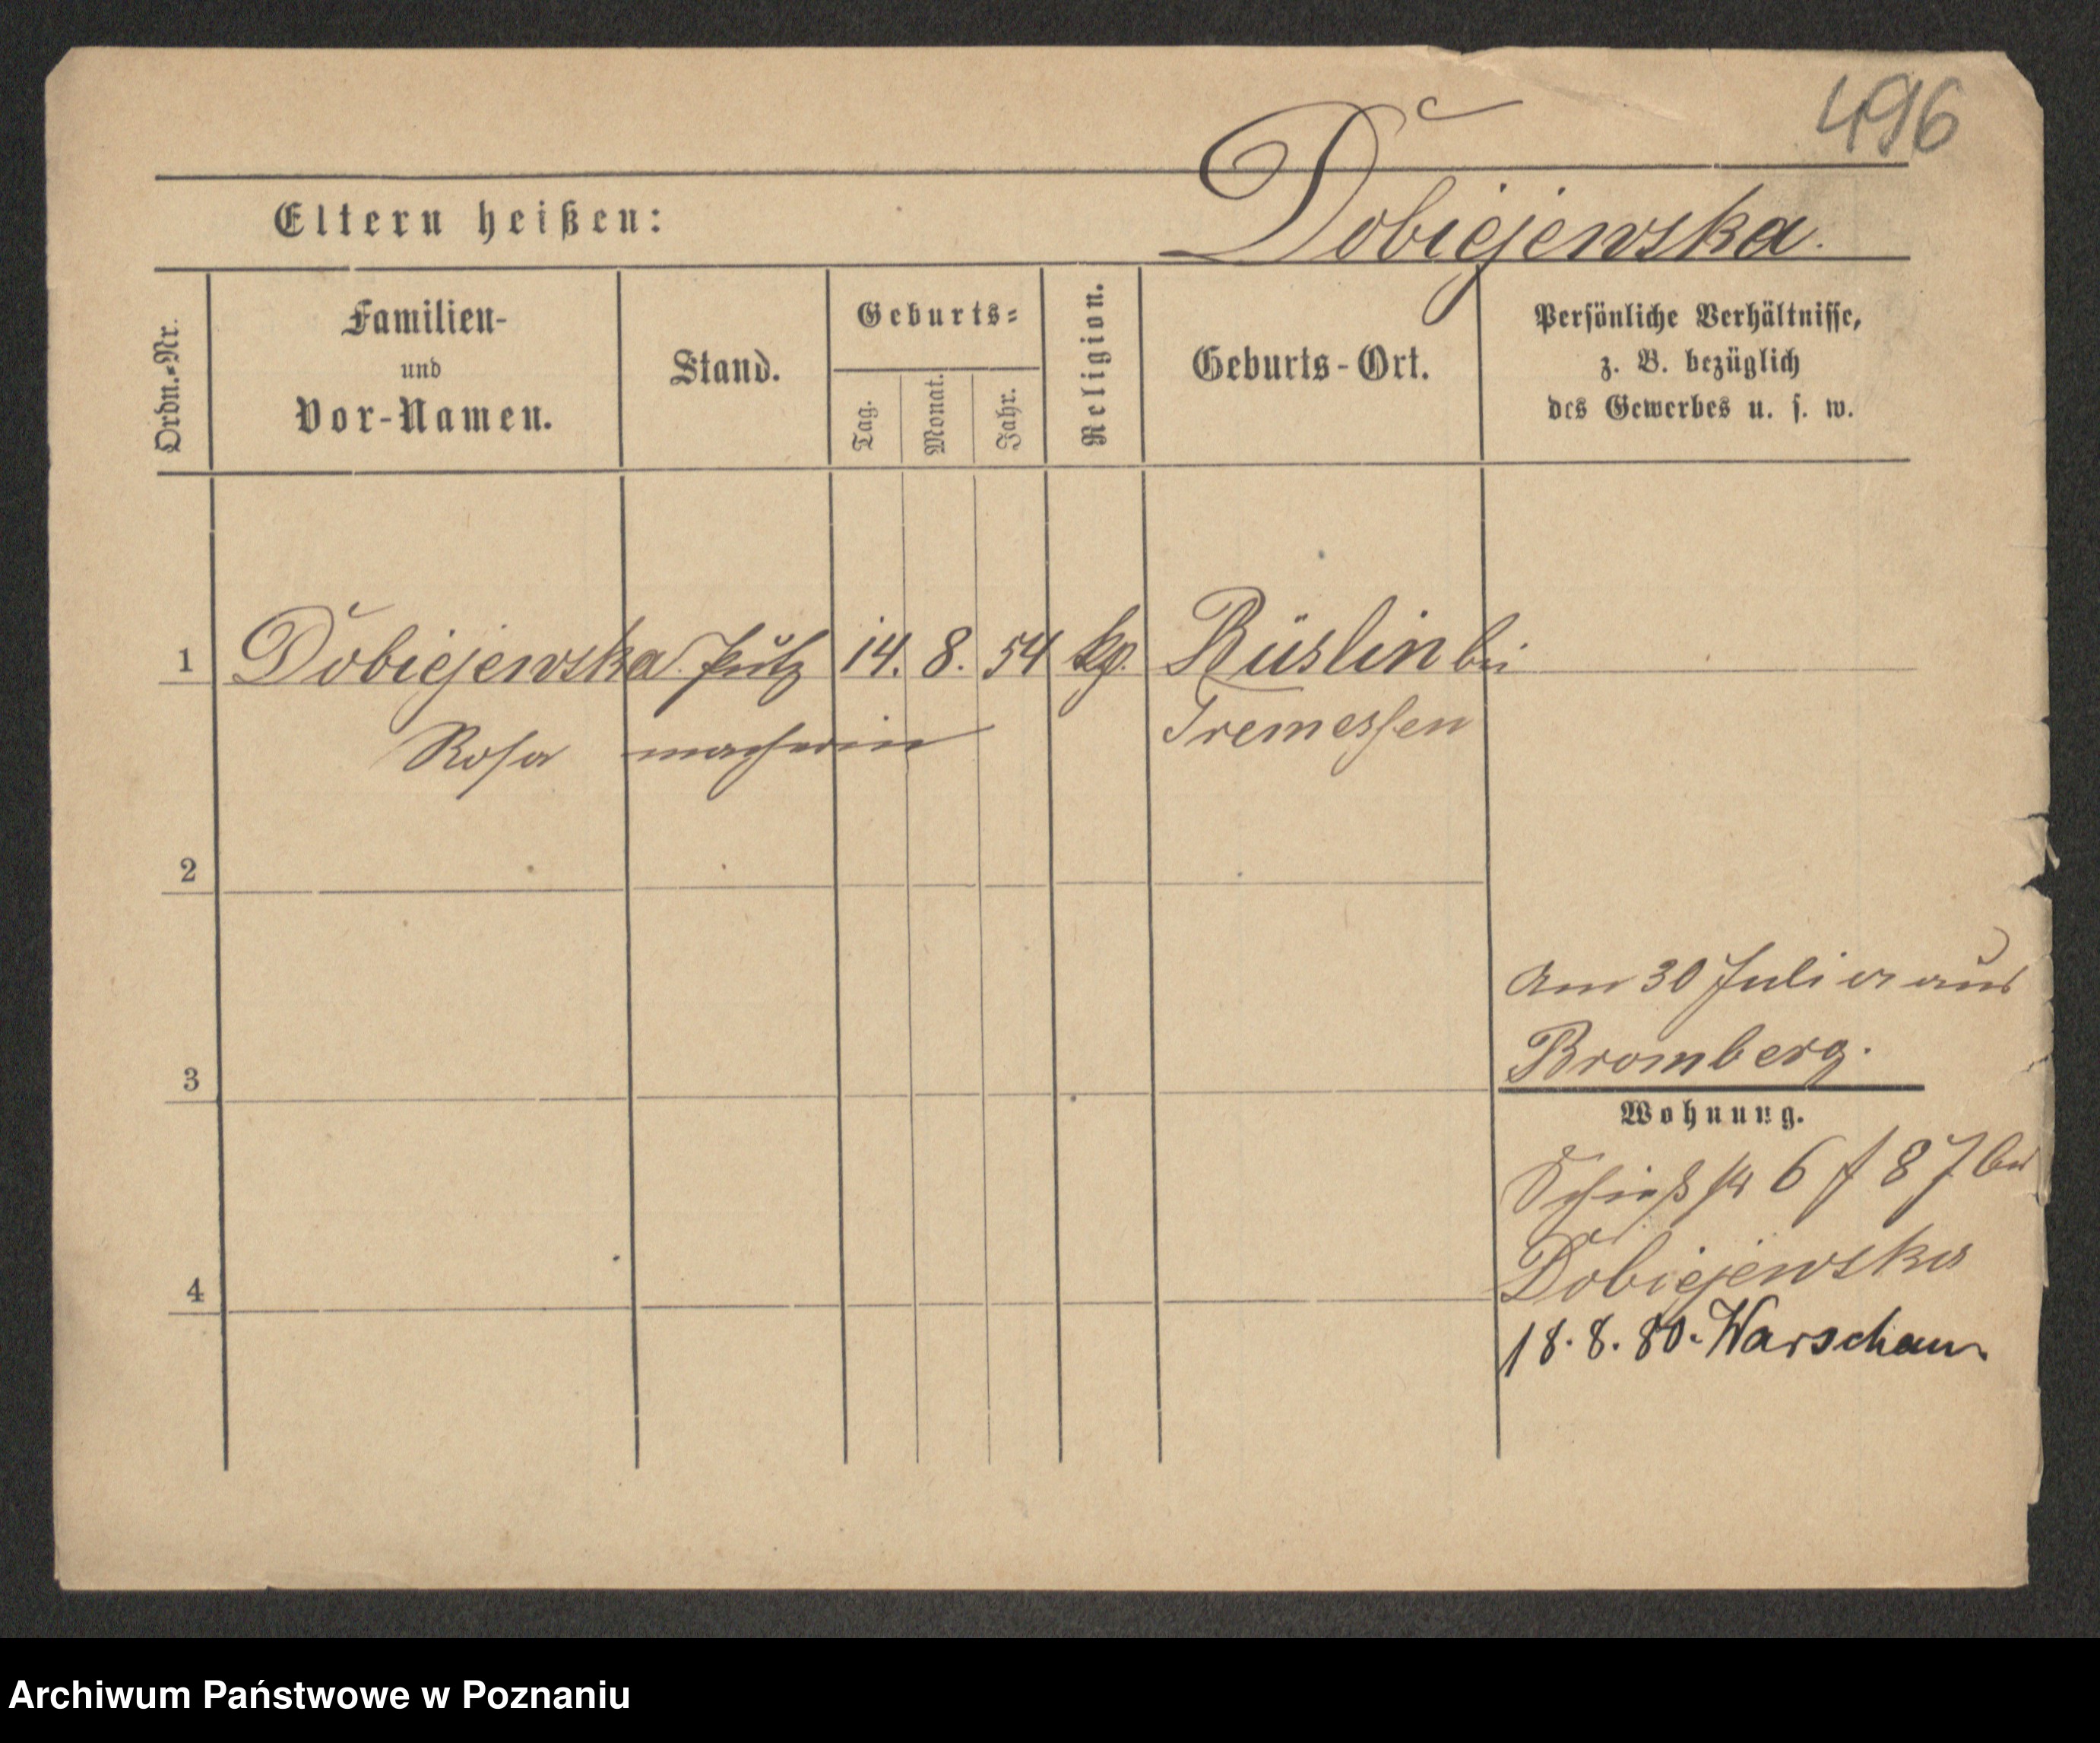 496
Eltern heißen:
Dobiejewska.
Ordn.-Nr.
Familien-
und
Vor-Namen.
Stand.
Geburts-
Tag.
Monat.
Jahr.
Religion.
Geburts-Ort.
Persönliche Verhältnisse,
z. B. bezüglich
des Gewerbes u. s. w.
1 Dobiejewska Putz 14. 8. 54 kg. Rüslin bei
Rosa macherin Tremessen
2
Am 30 Juli cr aus
3
Bromberg.
Wohnung.
Schießstr 6 f 87 bei
Dobiejewska
4
18.8.80. Warschau.
Archiwum Państwowe w Poznaniu